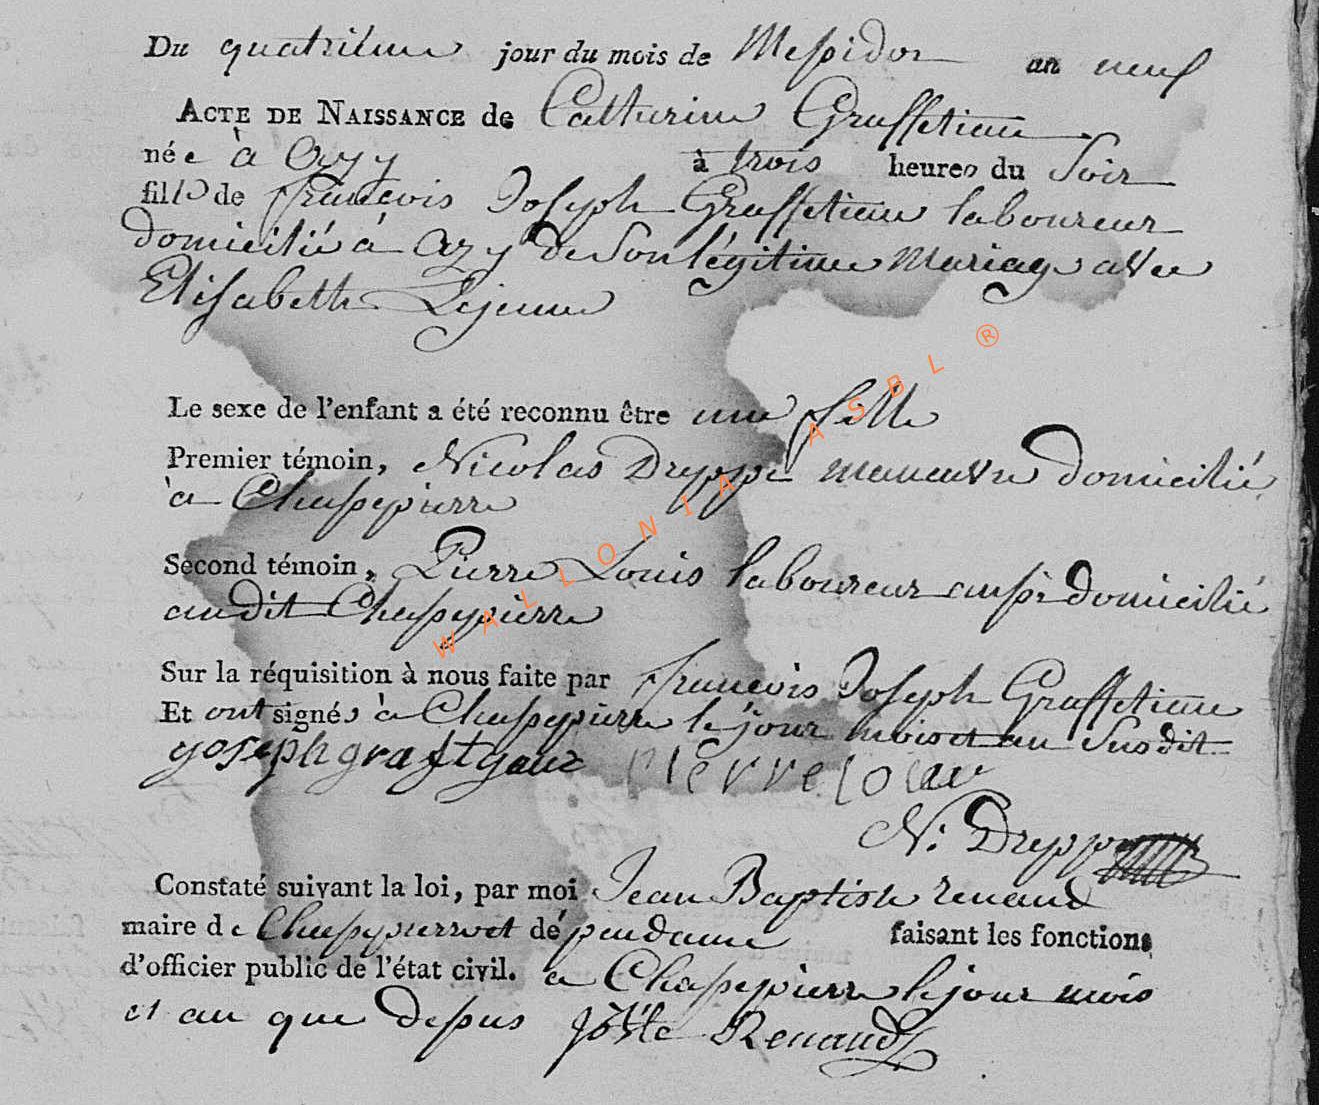 Du quatrième jour du mois de Messidor an neuf
ACTE DE NAISSANCE de Catherine Graffetiaux
née à Azy à trois heures du Soir
fille de françois Joseph Graffetiaux laboureur
domicilié à Azy de Son légitime Mariage avec
Elisabeth Lejeune
Le sexe de l'enfant a été reconnu être une fille
Premier témoin, Nicolas Dreppe manœuvre domicilié
à Chassepierre
Second témoin, Pierre Louis laboureur aussi domicilié
audit Chassepierre
Sur la réquisition à nous faite par françois Joseph Graffetiaux
Et ont signés à Chassepierre le jour mois et an Susdit
yoseph graftyaux pierre
N: Dreppe
Constaté suivant la loi, par moi Jean Baptiste renaud
maire de Chassepierre et dépendance faisant les fonctions
d'officier public de l'état civil. a Chassepierre le jour mois
et an que dessus Renaud
WALLONIA ASBL ®